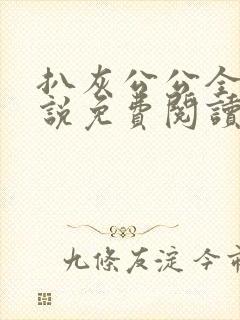 扒灰公公全
說免費閱讀
九條友淀今市